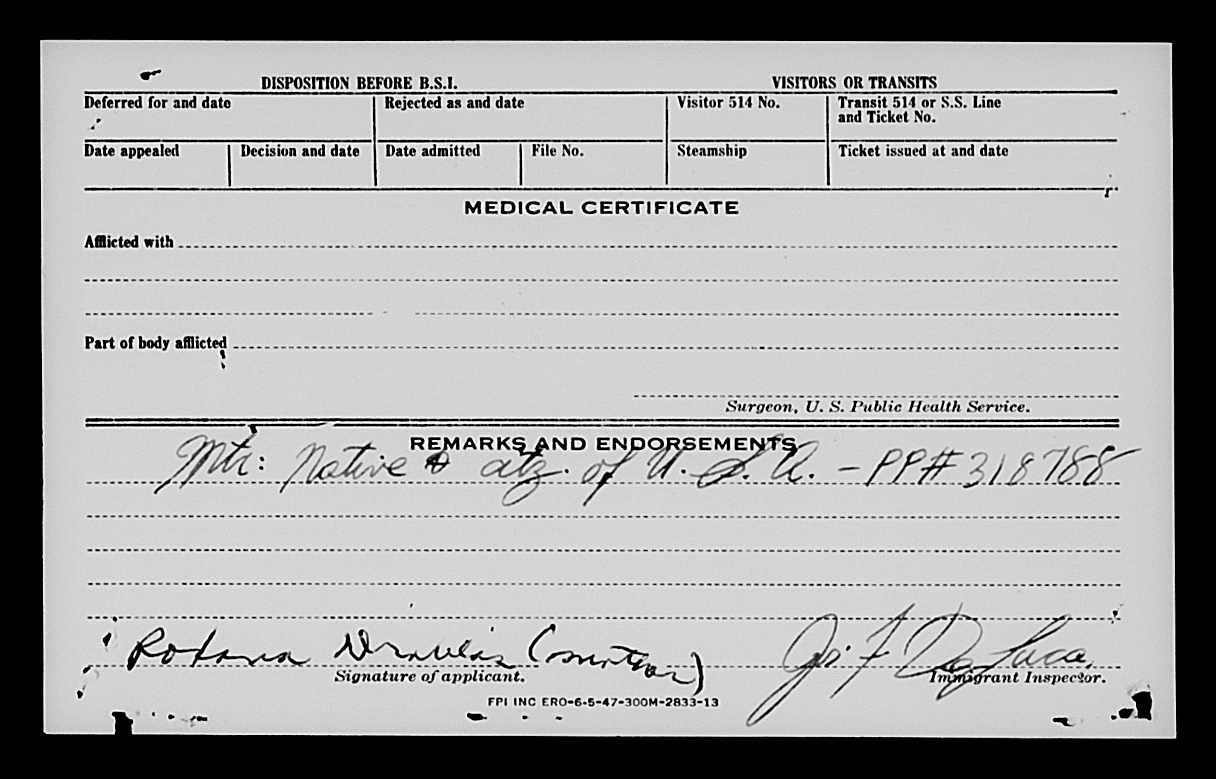 DISPOSITION BEFORE B.S.I. VISITORS OR TRANSITS
Deferred for and date Rejected as and date Visitor 514 No. Transit 514 or S.S. Line
and Ticket No.
Date appealed Decision and date Date admitted File No. Steamship Ticket issued at and date
MEDICAL CERTIFICATE
Afflicted with
Part of body afflicted
Surgeon, U. S. Public Health Service.
REMARKS AND ENDORSEMENTS
Mtr: Native & ctz. of U.S.A. - PP# 318788
Roxana (mother) F De Luca
Signature of applicant. Immigrant Inspector.
FPI INC ERO-6-5-47-300M-2833-13